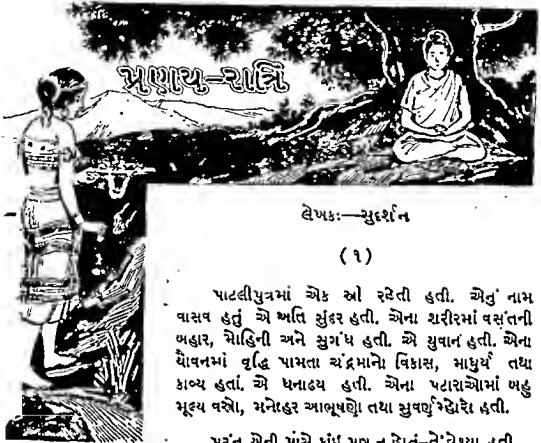 પ્રણય-રાત્રિ
લેખકઃ—સુદર્શન
(૧)
પાટલીપુત્રમાં એક સ્ત્રી રહેતી હતી. એનું નામ
વાસવ હતું એ અતિ સુંદર હતી. એના શરીરમાં વસંતની
બહાર, મોહિની અને સુગંધ હતી. એ યુવાન હતી. એના
યૌવનમાં વૃદ્ધિ પામતા ચંદ્રમાનો વિકાસ, માધુર્ય તથા
કાવ્ય હતાં. એ ધનાઢય હતી. એના પટારાઓમાં બહુ
મૂલ્ય વસ્ત્રો, મનોહર આભૂષણો તથા સુવર્ણમ્હોરો હતી.
પરંતુ એની પાસે